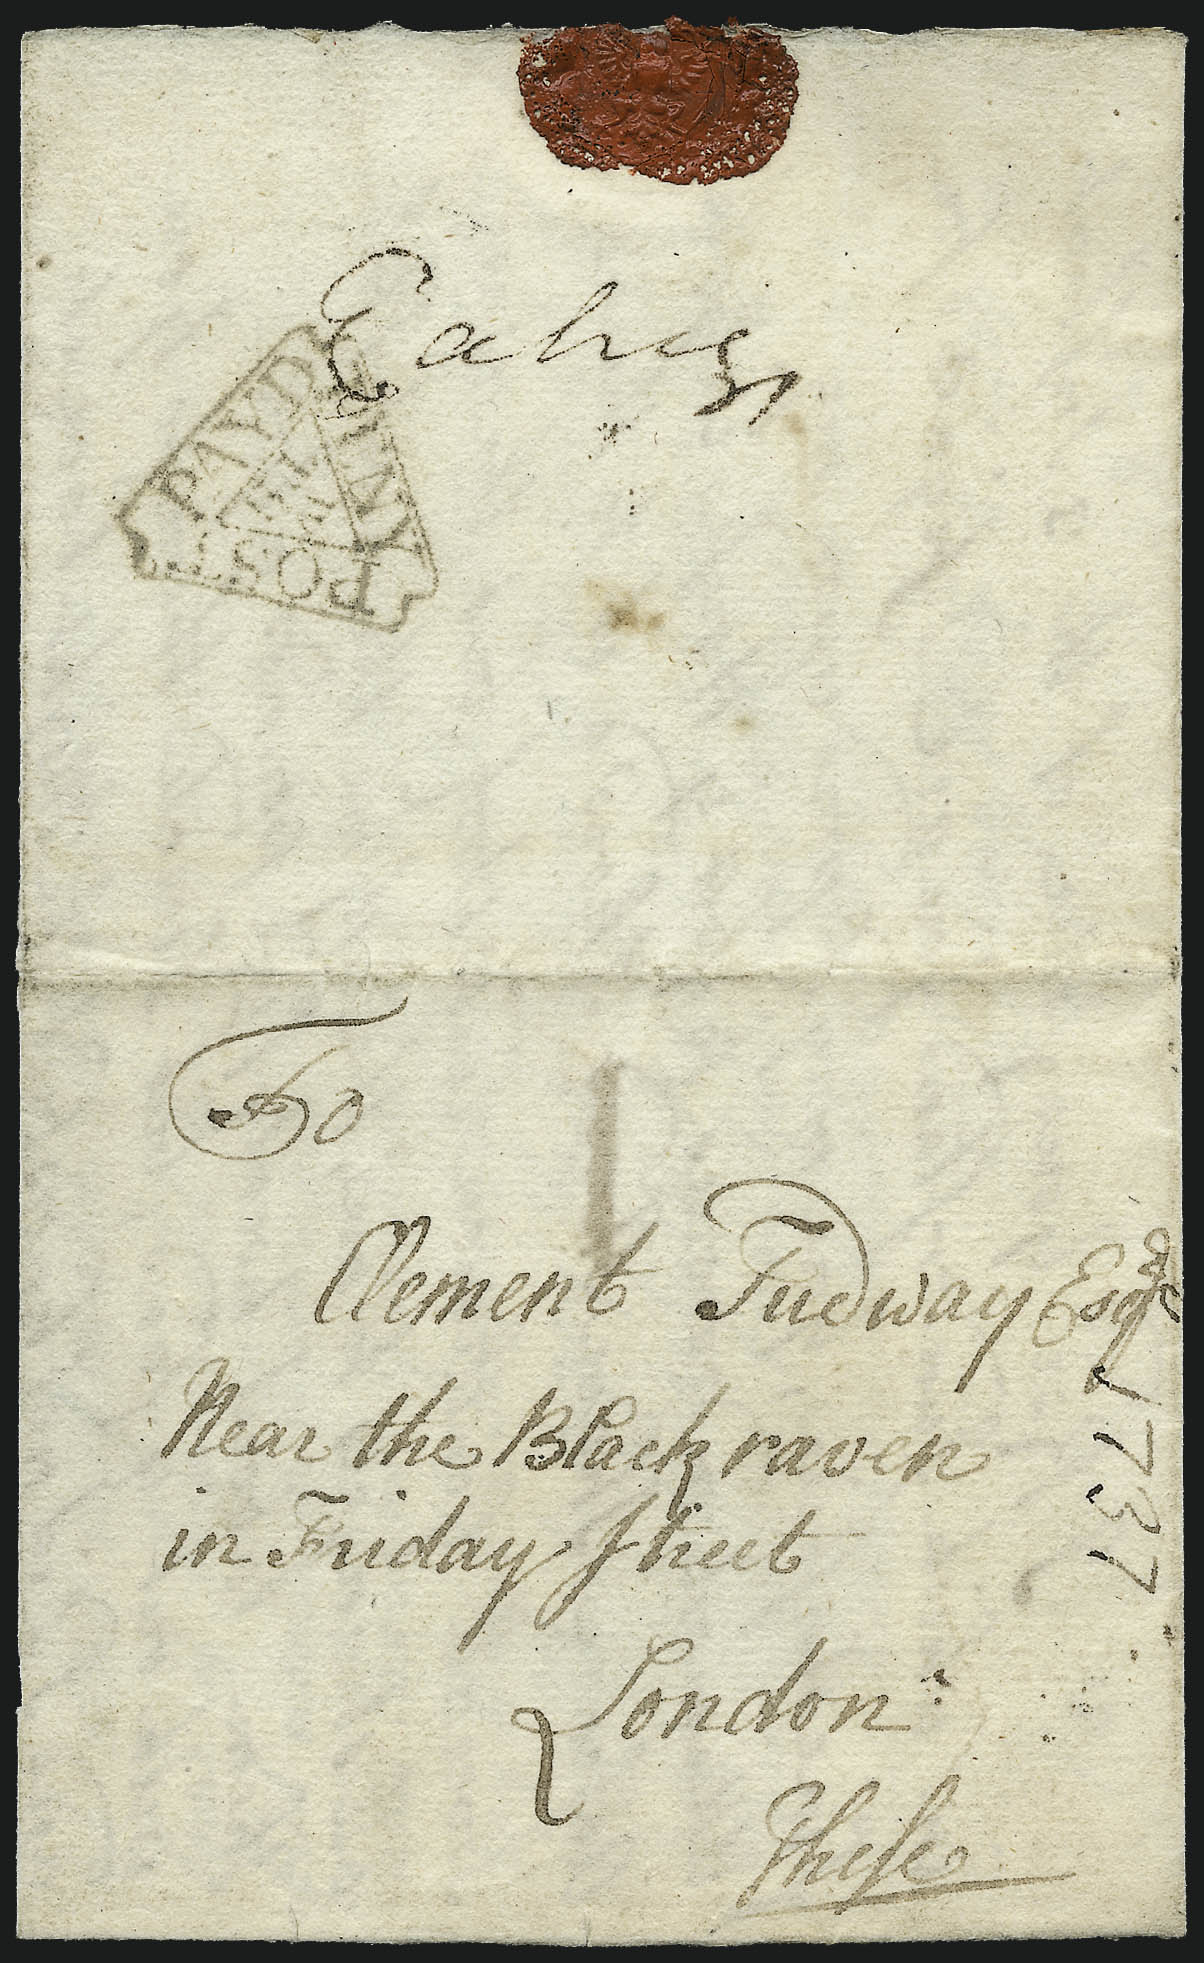 PAYD
PENNY
POST
To
Clement Tudway Esqr
Near the Black raven
in Friday ſtreet
London
Theſe
1737